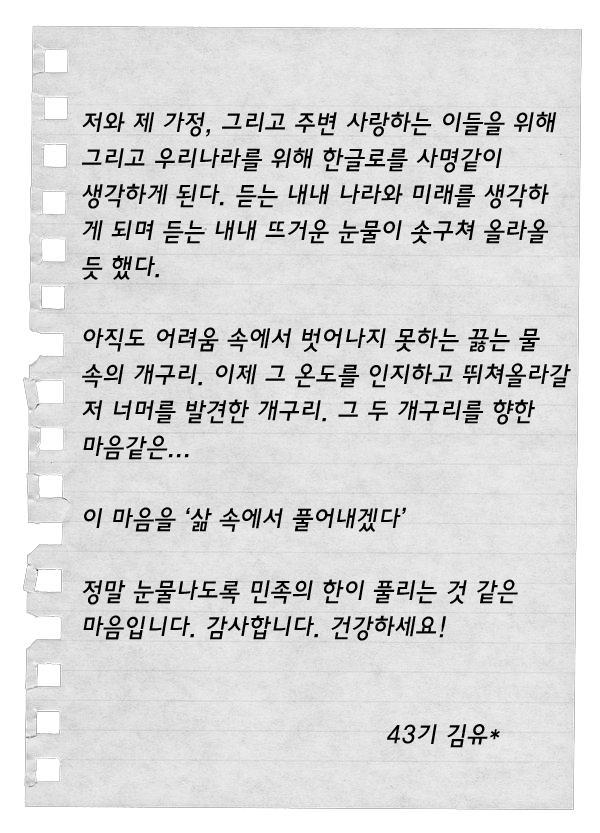 저와 제 가정, 그리고 주변 사랑하는 이들을 위해
그리고 우리나라를 위해 한글로를 사명같이
생각하게 된다. 듣는 내내 나라와 미래를 생각하
게 되며 듣는 내내 뜨거운 눈물이 솟구쳐 올라올
듯 했다.
아직도 어려움 속에서 벗어나지 못하는 끓는 물
속의 개구리. 이제 그 온도를 인지하고 뛰쳐올라갈
저 너머를 발견한 개구리. 그 두 개구리를 향한
마음같은...
이 마음을 ‘삶 속에서 풀어내겠다’
정말 눈물나도록 민족의 한이 풀리는 것 같은
마음입니다. 감사합니다. 건강하세요!
43기 김유*